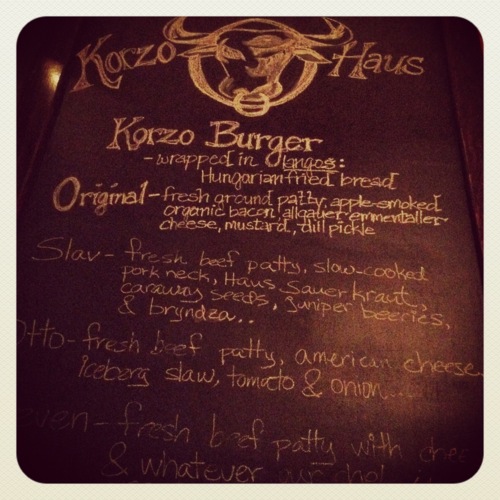 Korzo Haus
Korzo Burger
- wrapped in langos:
Hungarian fried bread
Original - fresh ground patty, apple-smoked
organic bacon, allgauer emmentaller
cheese, mustard, dill pickle
Slav - fresh beef patty, slow-cooked
pork neck, Haus Sauerkraut,
caraway seeds, juniper beeries,
& bryndza..
otto - fresh beef patty, american cheese
iceberg slaw, tomato & onion..
fresh beef patty with
& whatever our